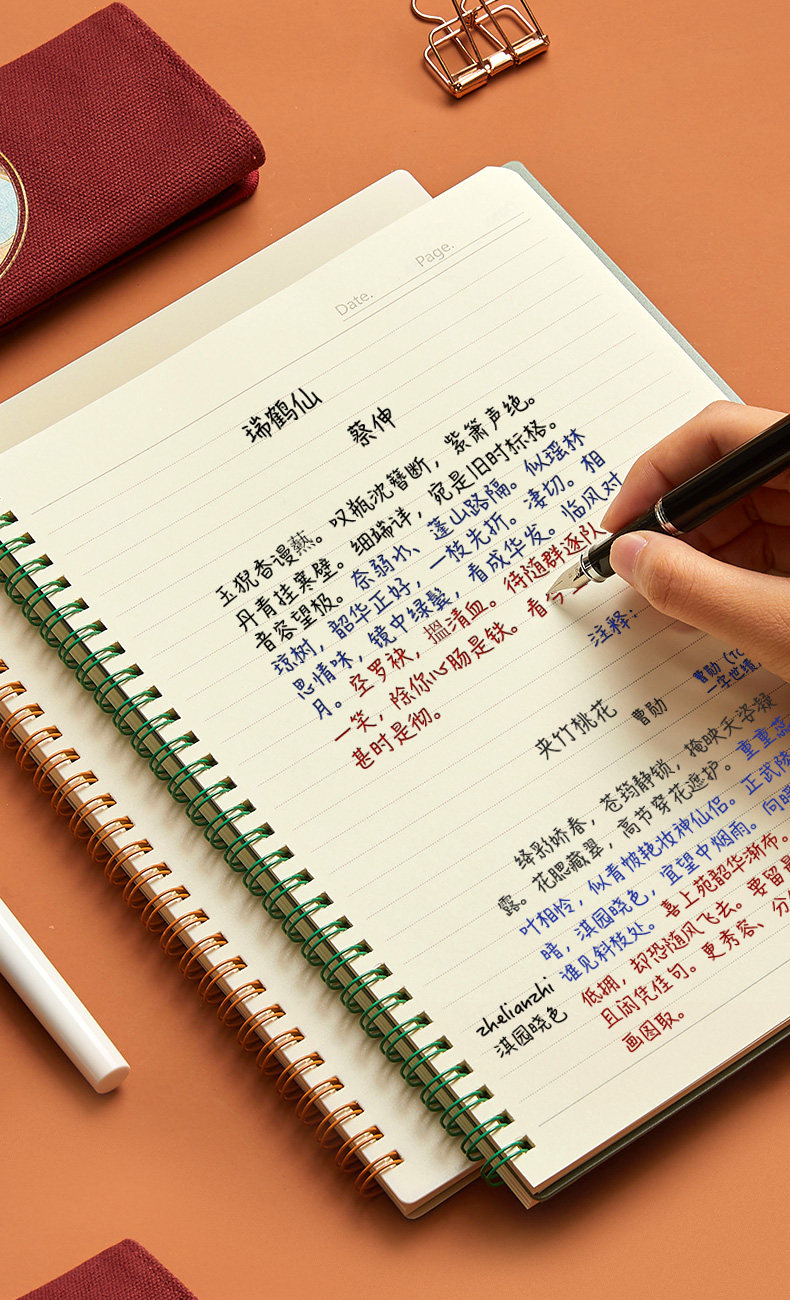 Date. Page.
瑞鹤仙
蔡伸
玉猊香谩爇。叹瓶沈簪断，紫箫声绝。
丹青挂寒壁。细端详，宛是旧时标格。
音容望极。奈弱水、蓬山路隔。似瑶林
琼树，韶华正好，一枝先折。凄切。相
思情味，镜中绿鬓，看成华发。临风对
月。空罗袂，搵清血。待随群逐队
一笑，除你心肠是铁。看
甚时是彻。
注释：
曹勋
一字世绩
夹竹桃花 曹勋
绛彩娇春，苍筠静锁，掩映夭姿凝
露。花腮藏翠，高节穿花遮护。重重蕊
叶相怜，似青帔艳妆神仙侣。正武陵
暗，淇园晓色，宜望中烟雨。向暖
谁见斜枝处。喜上苑韶华渐布。
低拥，却恐随风飞去。要留最
且闲凭佳句。更秀容、分
画图取。
zhelianzhi
淇园晓色